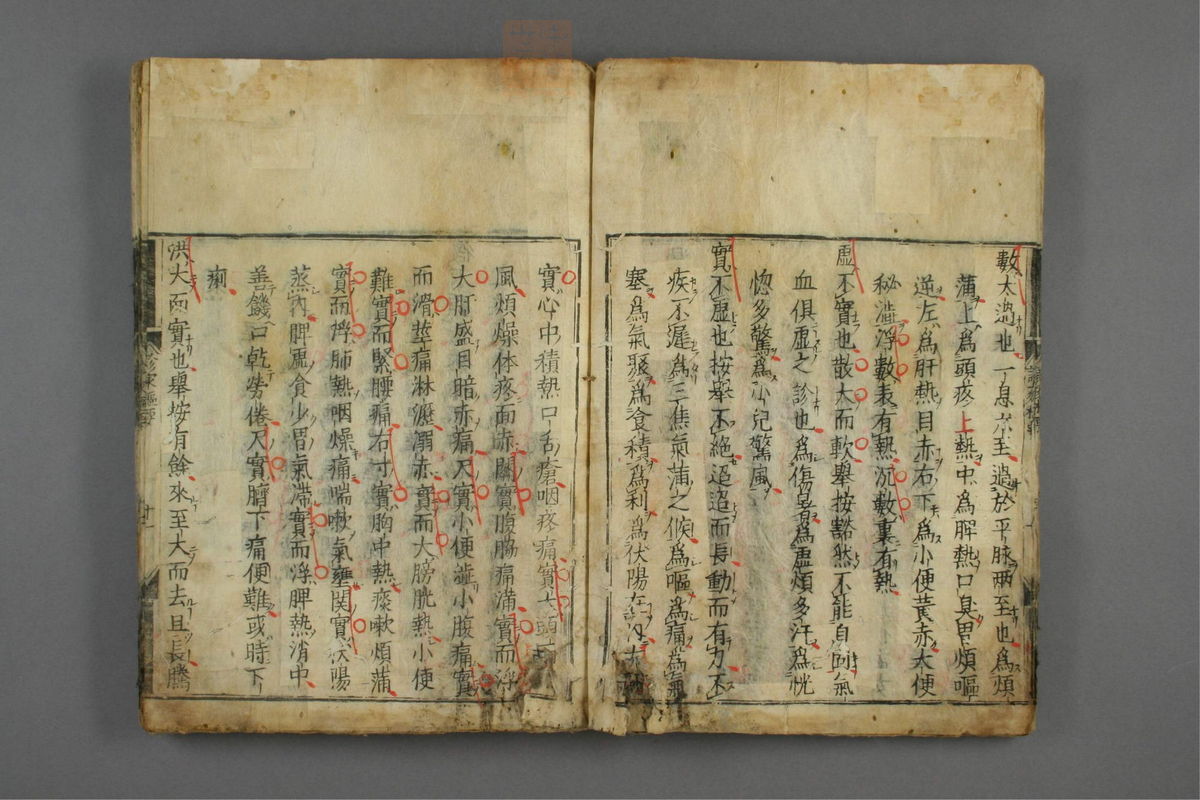 數太過也一息六至過於平脉兩至也爲煩
滿上爲頭疼上熱中爲脾熱口臭胃煩嘔
逆左爲肝熱目赤右下爲小便黃赤大便
秘澁浮數表有熱沉數裏有熱
虛不實也散大而軟舉按豁然不能自固氣
血俱虛之診也爲傷暑爲虛煩多汗爲恍
惚多驚爲小兒驚風
實不虛也按舉不絕迢迢而長動而有力不
疾不遲爲三焦氣滿之候爲嘔爲痛爲氣
塞爲氣聚爲食積爲利爲伏陽在內左
實心中積熱口舌瘡咽疼痛實大頭
風煩燥体疼面赤關實腹脇痛滿實而浮
大肝盛目暗赤痛尺實小便澁小腹痛實
而滑莖痛淋瀝溺赤實而大膀胱熱小便
難實而緊腰痛右寸實胸中熱痰嗽煩滿
實而浮肺熱咽燥痛喘嗽氣壅關實伏陽
蒸內脾虛食少胃氣滯實而浮脾熱消中
善饑口乾勞倦尺實臍下痛便難或時下
痢
洪大而實也舉按有餘來至大而去且長騰